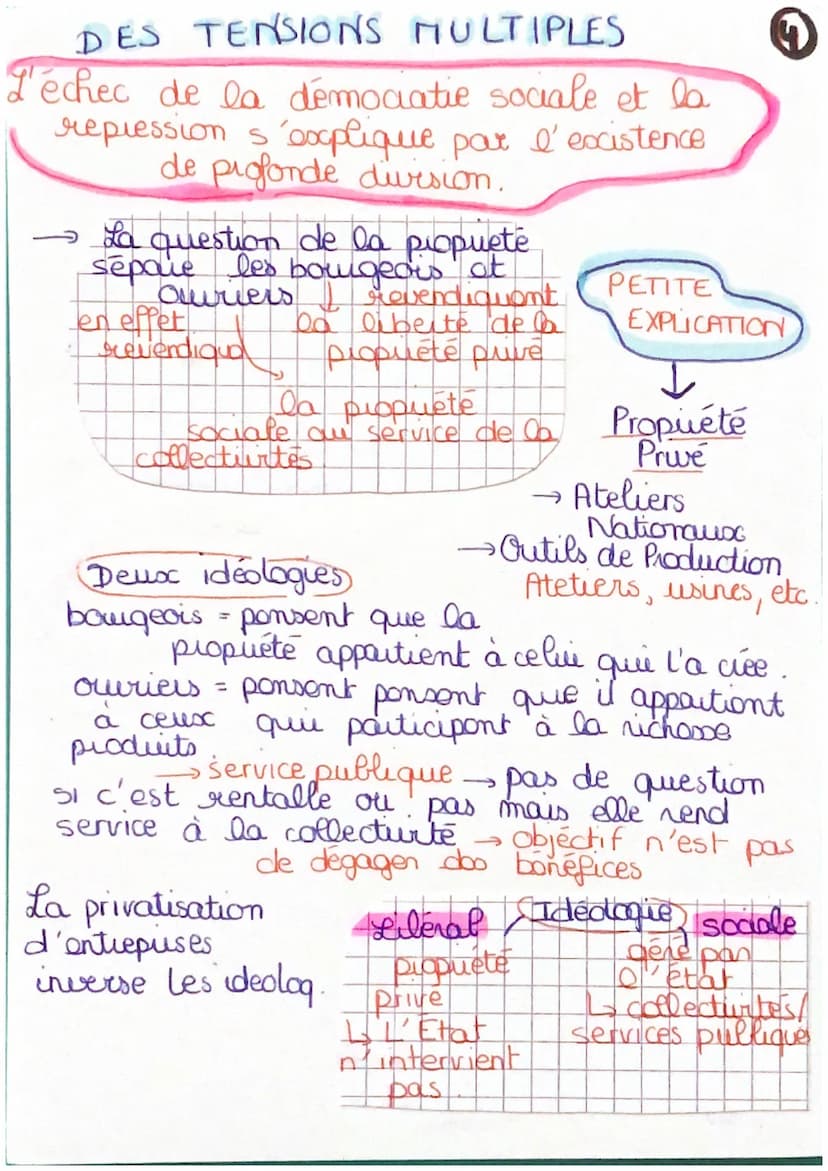 DES TENSIONS MULTIPLES
4
L'échec de la démociatie sociale et la
repression s'explique par l'existence
de profonde division.
→ La question de la propriété
sépare les bourgeois et
ouvriers ↓ revendiquent
en effet la liberté de la
revendiqu propriété privé
la propriété
sociale au service de la
collectivités
PETITE
EXPLICATION
↓
Propriété
Privé
→ Ateliers
Nationaux
→ Outils de Production
Ateliers, usines, etc.
Deux idéologies
bourgeois = pensent que la
propriété appartient à celui qui l'a créé.
ouvriers = pensent pensent que il appartient
à ceux qui participent à la richesse
produits.
→ service publique → pas de question
si c'est rentable ou pas mais elle rend
service à la collectivité → objéctif n'est pas
de dégager des bénéfices
La privatisation
d'entreprises
inverse les ideolog.
Libéral Idéologie sociale
propriété
privé
↳ L'État
n'intervient
pas.
géré par
l'état
↳ collectivités/
services publiques